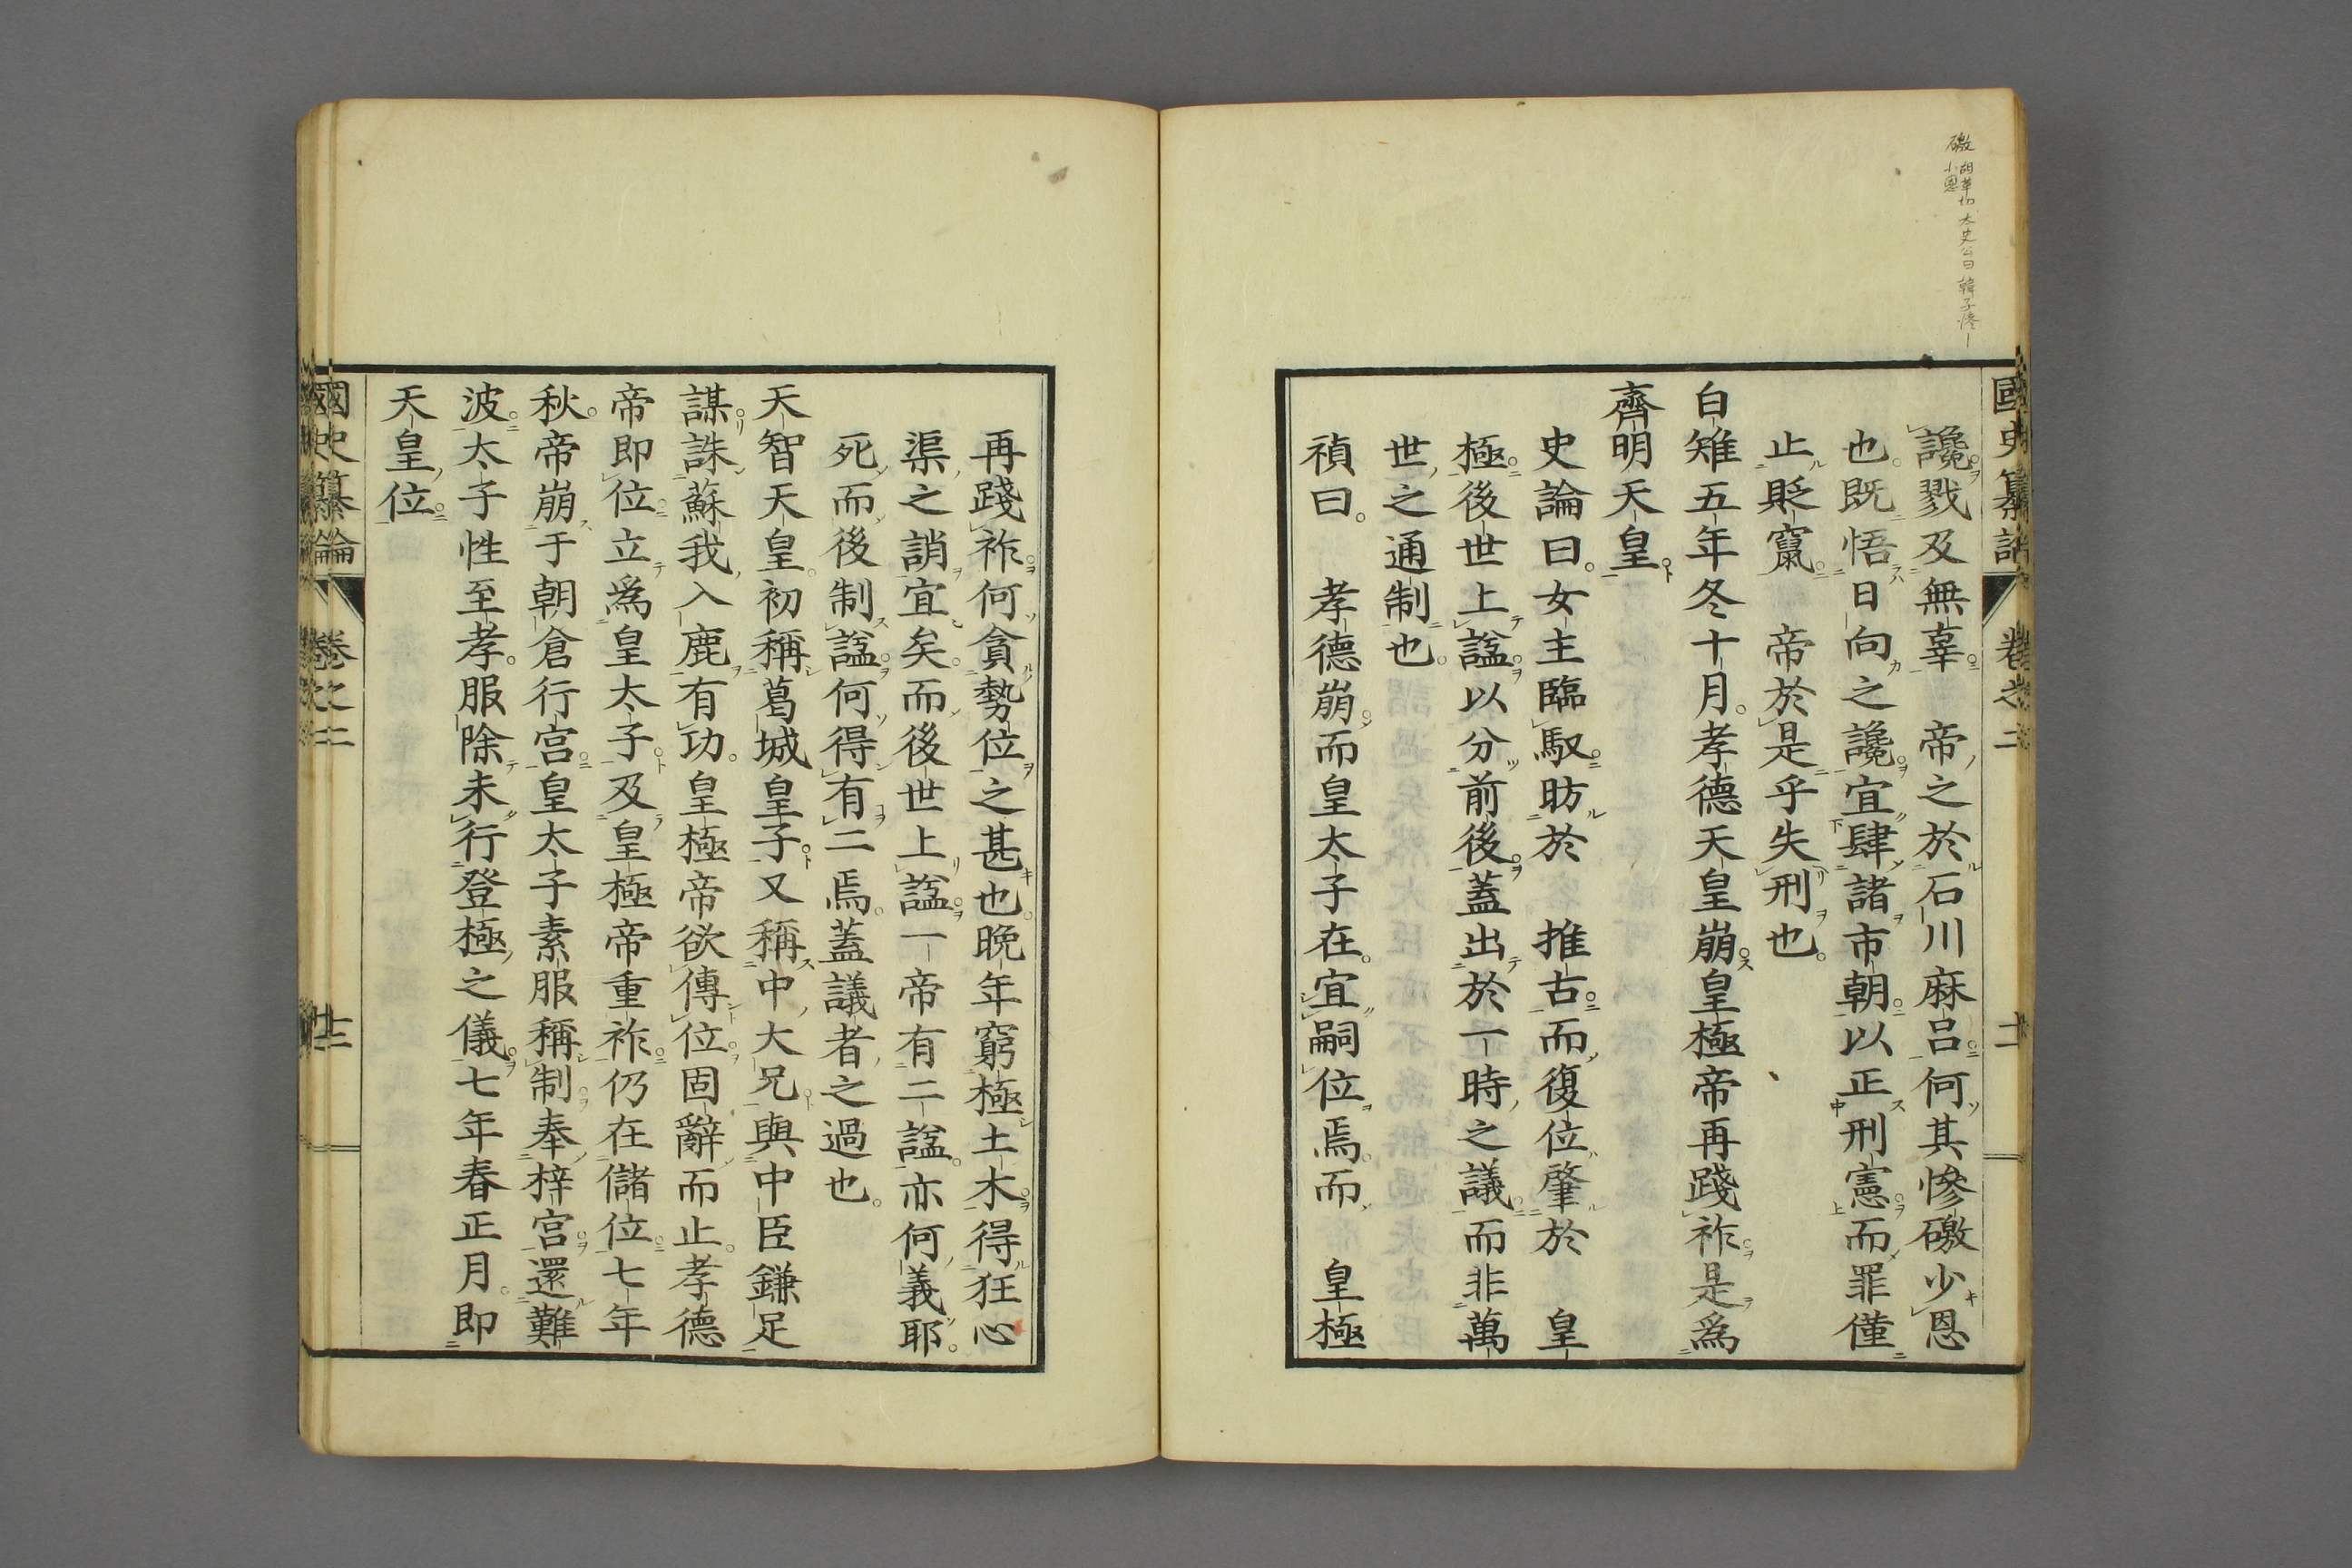 磤 胡革切 太史公曰 韓子慘
小恩
國史纂論 卷之二 十二
讒戮及無辜 帝之於石川麻呂何其慘礉少恩
也既悟日向之讒宜肆諸市朝以正刑憲而罪僅
止貶竄 帝於是乎失刑也
白雉五年冬十月孝德天皇崩皇極帝再踐祚是爲
齊明天皇
史論曰女主臨馭昉於 推古而復位肇於 皇
極後世上謚以分前後蓋出於一時之議而非萬
世之通制也
禎曰 孝德崩而皇太子在宜嗣位焉而 皇極
再踐祚何貪勢位之甚也晚年窮極土木得狂心
渠之誚宜矣而後世上謚一帝有二謚亦何義耶
死而後制謚何得有二焉蓋議者之過也
天智天皇初稱葛城皇子又稱中大兄與中臣鎌足
謀誅蘇我入鹿有功皇極帝欲傳位固辭而止孝德
帝即位立爲皇太子及皇極帝重祚仍在儲位七年
秋帝崩于朝倉行宮皇太子素服稱制奉梓宮還難
波太子性至孝服除未行登極之儀七年春正月即
天皇位
國史纂論 卷之二 十三